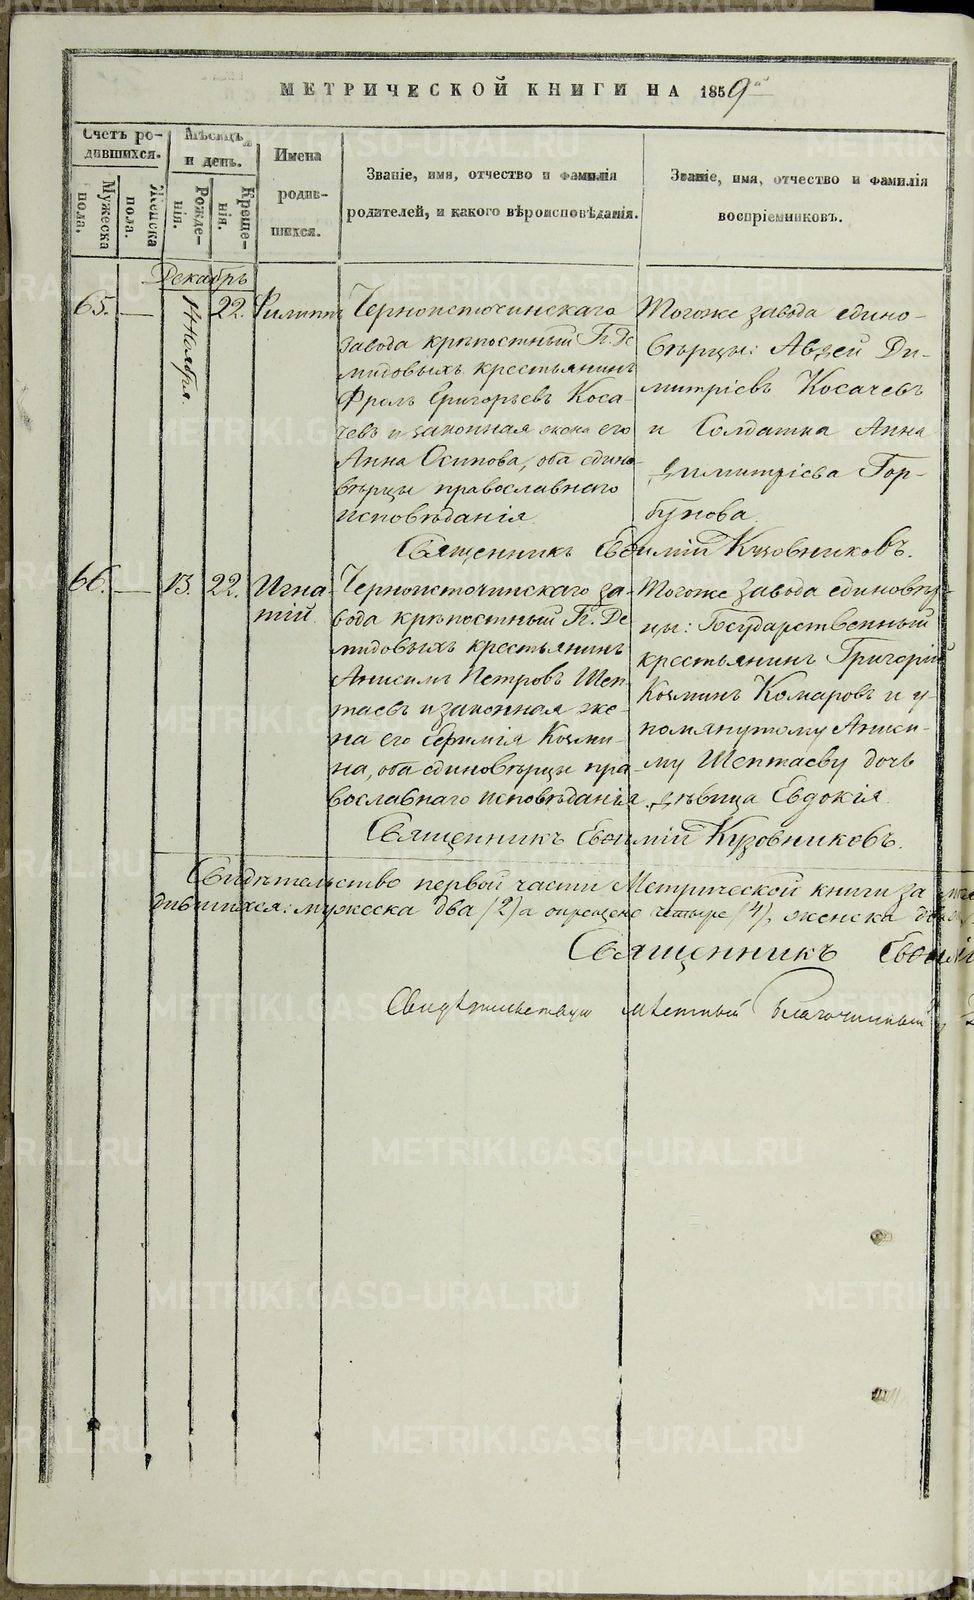 МЕТРИЧЕСКОЙ КНИГИ НА 1859й
Счетъ ро-
дившихся.
Мужеска
пола.
Женска
пола.
Мѣсяцъ
и день.
Рожде-
нія.
Креще-
нія.
Имена
родив-
шихся.
Званіе, имя, отчество и фамилія
родителей, и какого вѣроисповѣданія.
Званіе, имя, отчество и фамилія
воспріемниковъ.
Декабрь
65. — 14 Ноября. 22. Филиппъ
Черноисточинскаго
завода крѣпостный Г.г. Де
мидовыхъ крестьянинъ
Фролъ Григорьевъ Коса
чевъ и законная жена его
Анна Осипова, оба едино-
вѣрцы православнаго
исповѣданія.
Тогоже завода едино-
вѣрцы: Авдей Ди-
митріевъ Косачевъ
и Солдатка Анна
Димитріева Гор-
бунова.
Священникъ Евѳимій Кузовниковъ.
66. — 13. 22. Игна
тій.
Черноисточинскаго за-
вода крѣпостный Г.г. Де
мидовыхъ крестьянинъ
Анисимъ Петровъ Шеп-
таевъ и законная же-
на его Евѳимія Козми-
на, оба единовѣрцы пра-
вославнаго исповѣданія.
Тогоже завода единовѣр-
цы: Государственный
крестьянинъ Григорій
Козминъ Комаровъ и у-
помянутому Аниси-
му Шептаеву дочь
дѣвица Евдокія.
Священникъ Евѳимій Кузовниковъ.
Свидѣтельство первой части Метрической книги за
дившихся: мужеска два (2) а окрещено четыре (4), женска
Священникъ
Свидѣтельствую мѣстный Благочинный
METRIKI.GASO-URAL.RU